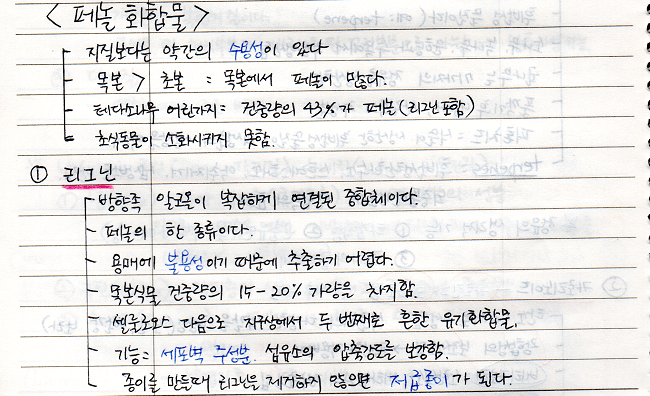 < 페놀 화합물 >
- 지질보다는 약간의 수용성이 있다
- 목본 > 초본 : 목본에서 페놀이 많다.
- 테다소나무 어린가지 : 건중량의 43%가 페놀(리그닌 포함)
- 초식동물이 소화시키지 못함.
① 리그닌
- 방향족 알코올이 복잡하게 연결된 중합체이다.
- 페놀의 한 종류이다.
- 용매에 불용성이기 때문에 추출하기 어렵다.
- 목본식물 건중량의 15-20% 가량을 차지함.
- 셀룰로오스 다음으로 지구상에서 두 번째로 흔한 유기화합물.
- 기능 : 세포벽 주성분. 섬유소의 압축강도를 보강함.
- 종이를 만들때 리그닌을 제거하지 않으면 저급종이가 된다.